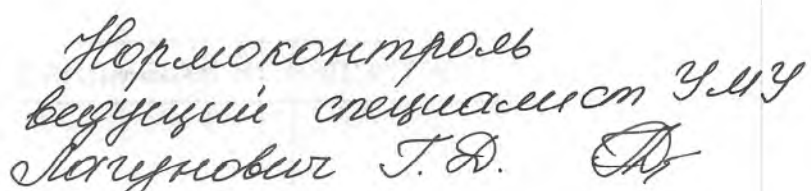 Нормоконтроль
ведущий специалист УМУ
Лагунович Т.Д.